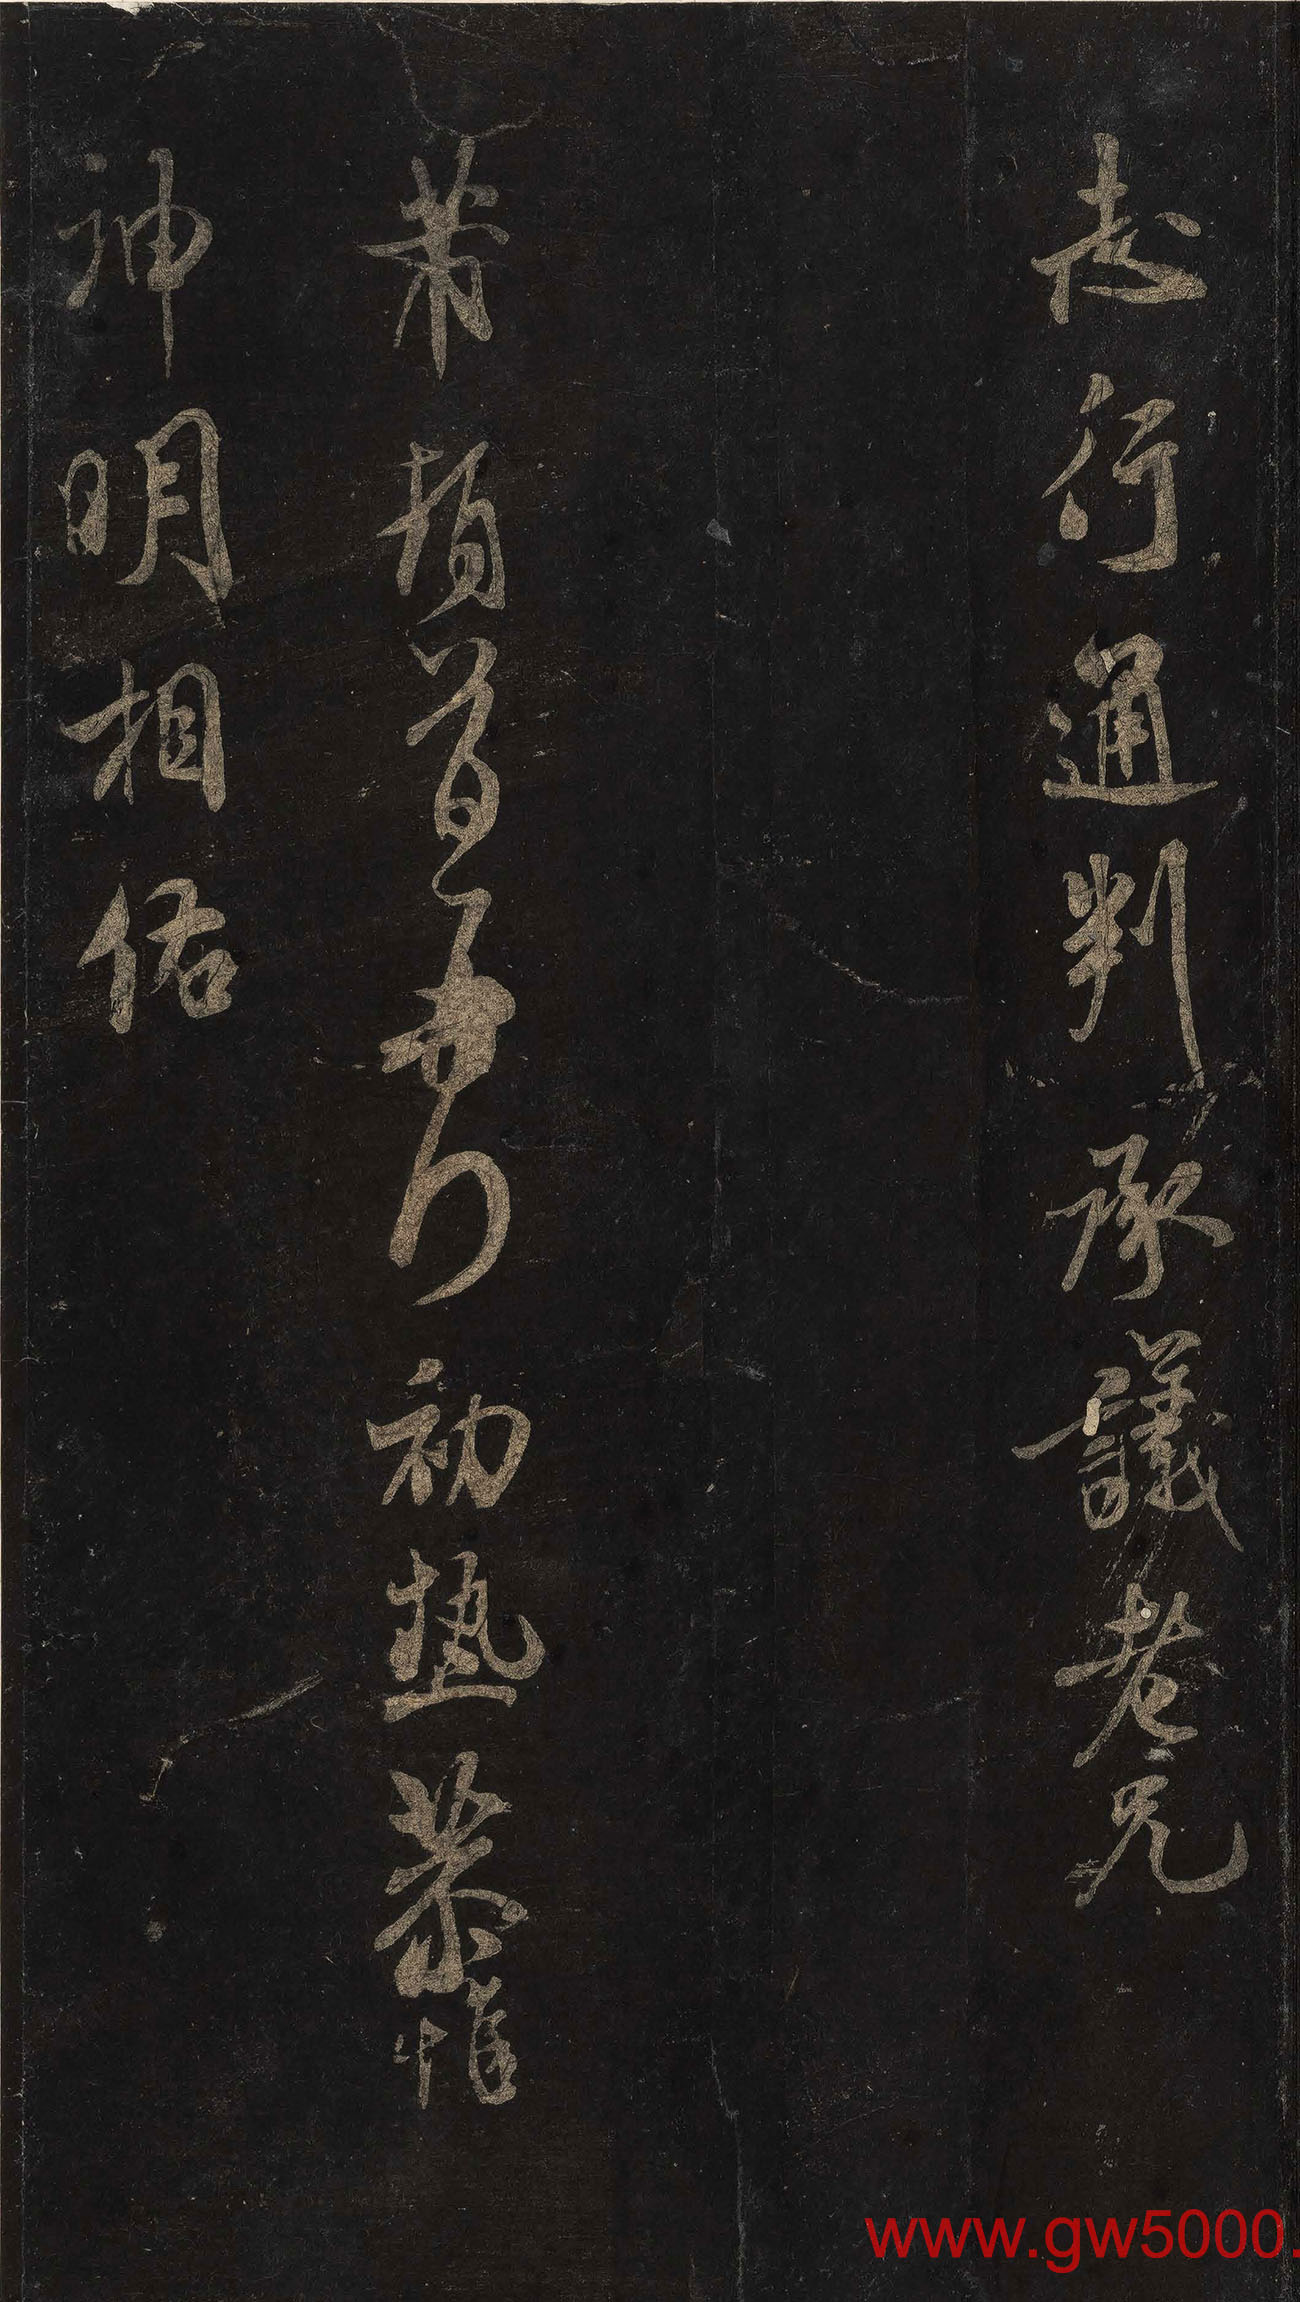 志行通判承議老兄
芾頓首再行初墊恭惟
神明相佑
www.gw5000.